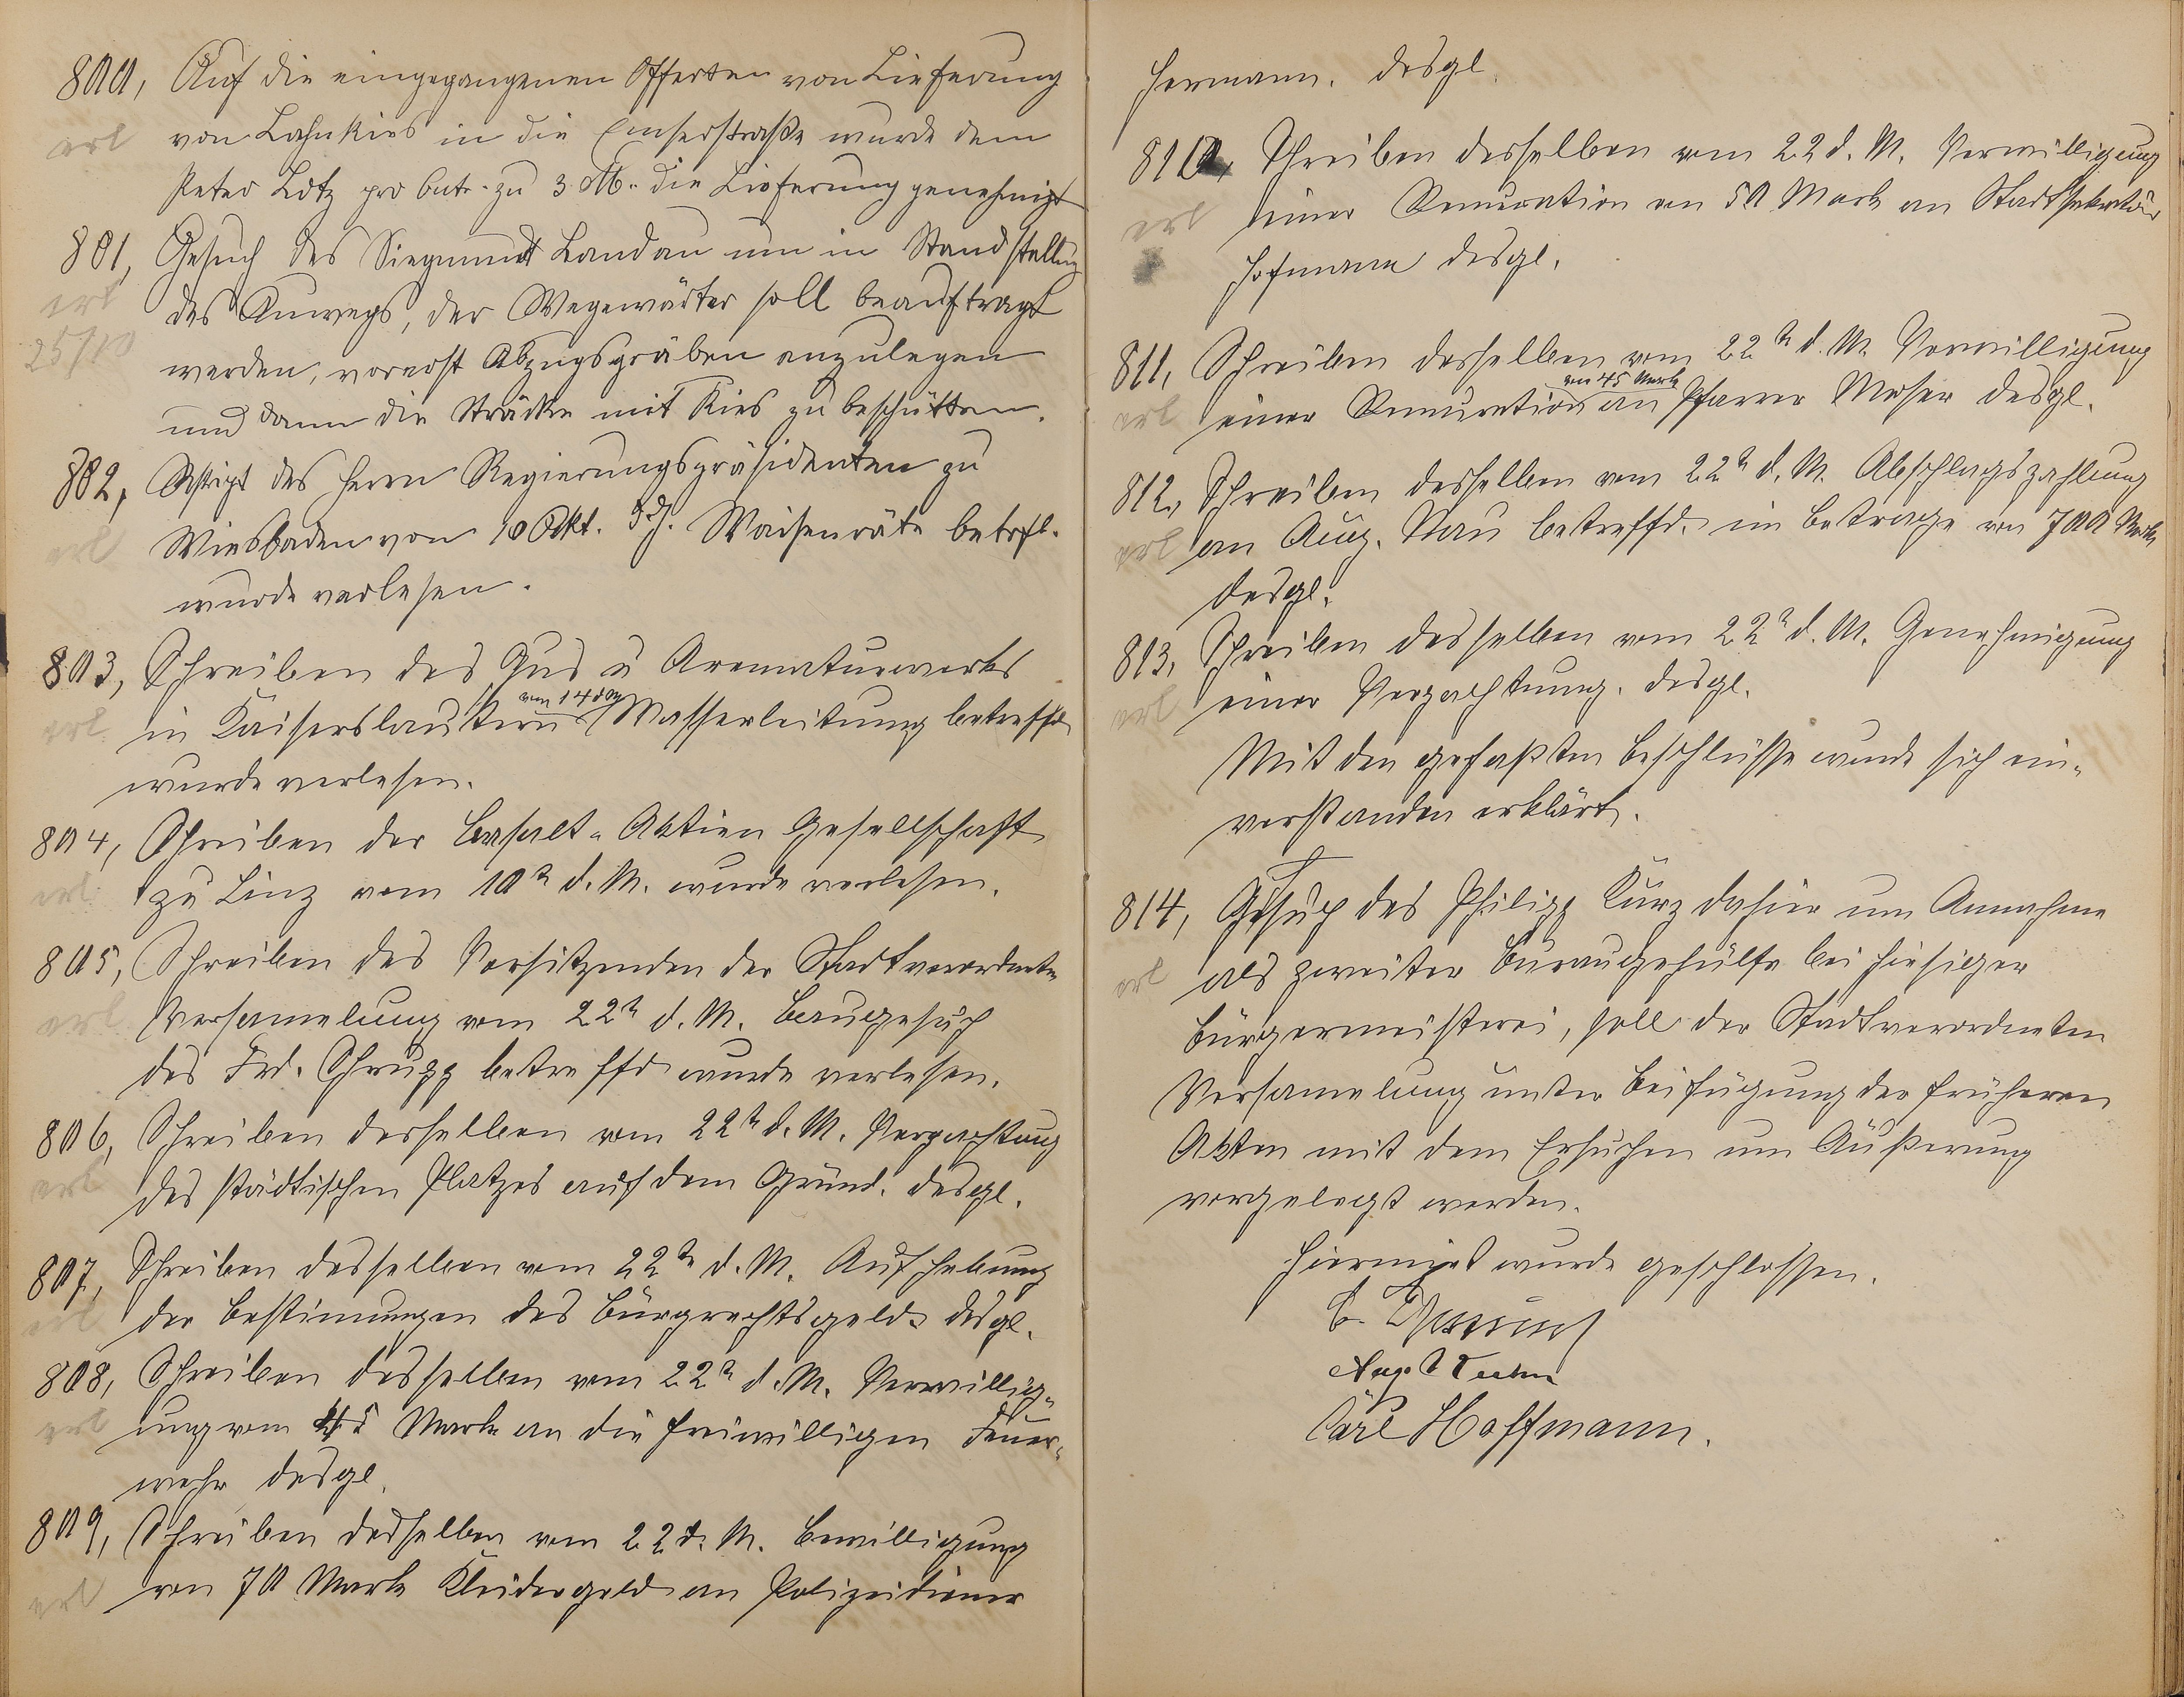 800, Auf die eingegangenen Offerten von Lieferung
erl von Lahnkies in die Emserstraße wurde dem
Peter Lotz pro cbtr. zu 3 M. die Lieferung genehmigt
801, Gesuch des Siegmund Landau um in Stand stellung
erl des Auwegs, der Wegewärter soll beauftragt
25/10 werden, vorerst Abzugsgräben anzulegen
und dann die Strecke mit Kies zu beschütten.
802, Reskript des Herrn Regierungspräsidenten zu
erl Wiesbaden von 10 Okt. d. J. Waisenräte betrfd.
wurde verlesen.
803, Schreiben des Gus u Armaturwerks
vom 14 d M
erl in Kaiserslautern Wasserleitung betreffd
wurde verlesen.
804, Schreiben der Basalt-Aktien Gesellschaft
erl zu Linz vom 10n d. M. wurde verlesen.
805, Schreiben des Vorsitzenden der Stadtverordneten
erl Versamelung vom 22n d. M. Baugesuch
des Frd. Schrupp betreffd wurde verlesen.
806, Schreiben desselben vom 22n d. M. Verpachtung
erl des städtischen Platzes auf dem Gründ. desgl.
807, Schreiben desselben vom 22n d. M. Aufhebung
erl der Bestimungen des Bürgrechtsgelds desgl.
808, Schreiben desselben vom 22n d. M. Verwillig-
erl ung vom 45 Mark an die freiwilligen Feuer-
wehr desgl.
809, Schreiben desselben vom 22 d. M. Bewilligung
erl von 70 Mark Kleidergeld an Polizeidiener
Hermann. desgl.
810, Schreiben desselben vom 22 d. M. Verwilligung
erl einer Remuration von 50 Mark an Stadtsekretär
Hofmann desgl.
811, Schreiben desselben vom 22n d. M. Verwilligung
von 45 Mark
erl einer Remuration an Pfarrer Moser desgl.
812, Schreiben desselben vom 22n d. M. Abschlagszahlung
erl an Aug. Nau betreffd. im Betrage von 700 Mark
desgl.
813, Schreiben desselben vom 22n d. M. Genehmigung
erl einer Verpachtung. desgl.
Mit den gefaßten Beschlüsse wurde sich ein-
verstanden erklärt.
814, Gesuch des Philipp Kurz dahier um Annahme
erl als zweiter Büraugehülfe bei hiesiger
Bürgermeisterei, soll der Stadtverordneten
Versamelung unter Beifügung der früheren
Akten mit dem Ersuchen um Äußerung
vorgelegt werden.
Hiermit wurde geschlossen.
Carl Hoffmann.